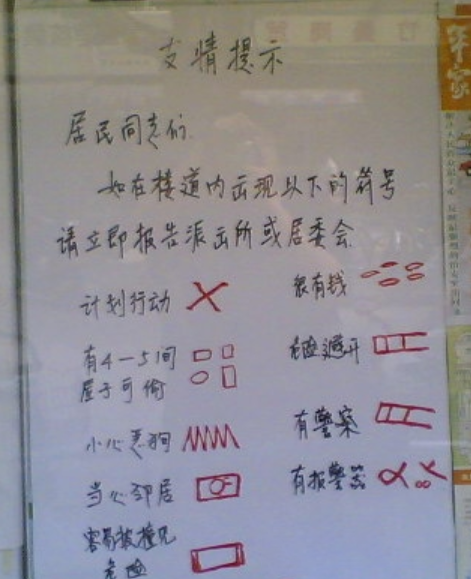 友情提示
居民同志们
如在楼道内出现以下的符号
请立即报告派出所或居委会
计划行动
很有钱
有4—5间
屋子可偷
危险避开
小心恶狗
有警察
当心邻居
有报警器
容易被撞见
危险